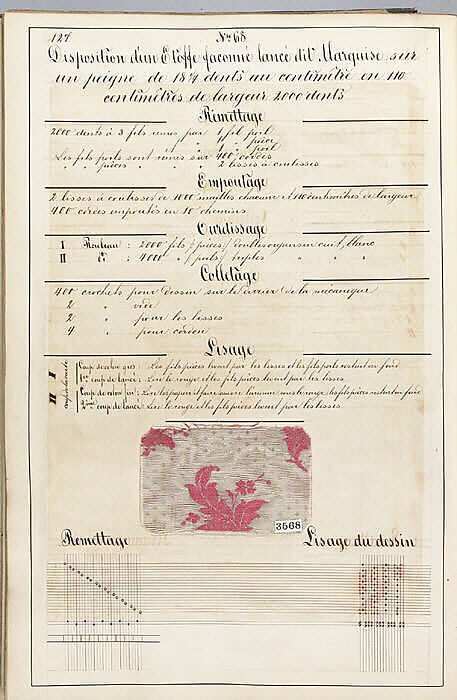 127
No 68
Disposition d'un Etoffe façonné lancé dit Marquise sur
un peigne de 18 dents au centimètre en 110
centimètres de largeur 2000 dents
Remettage
2000 dents à 3 fils remis par 1 fil poil
" " 1 " pièce
" " 1 " poil
Les fils poils sont remis sur 400 cordes
" pièces " " 2 lisses à coulisses
Empoutage
2 lisses à coulisses de 1000 mailles chacune et 110 centimètres de largeur
400 cordes empoutés en 10 chemins
Ourdissage
I Rouleau : 2000 fils / pièces / cuit, blanc
II " : 4000 " / poils / triples " "
Colletage
400 crochets pour dessin sur le de la mécanique
2 " vide
2 " pour les lisses
4 " pour cordon
Lisage
I Coup de : Les fils pièces levant par les lisses et les fils poils restant en fond
1er coup de lancé : Lire le rouge et les fils pièces levant par les lisses
II Coup de : le rouge, les fils pièces restant en fond
2ème coup de lancé : Lire le rouge et les fils pièces levant par les lisses
3568
Remettage
Lisage du dessin